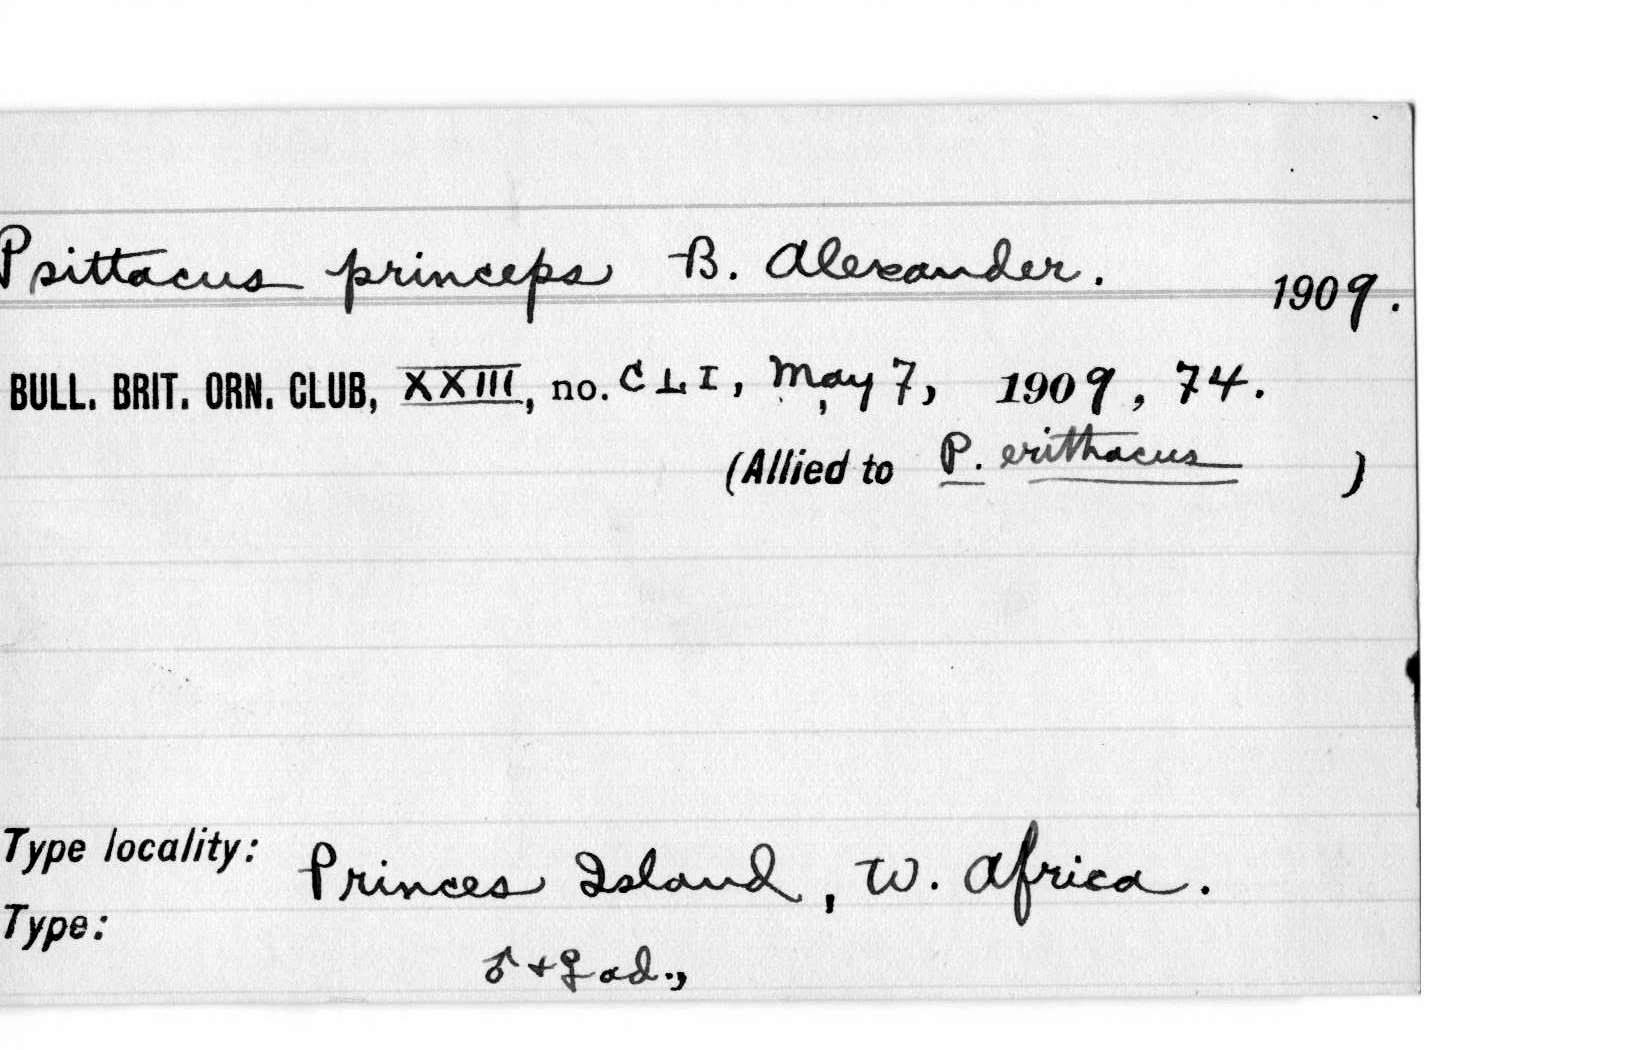 Psittacus princeps B. Alexander. 1909.
BULL. BRIT. ORN. CLUB, XXIII, no. CLI, May 7, 1909, 74.
(Allied to P. erithacus )
Type locality: Princes Island, W. Africa.
Type:
♂ + ♀ ad.,